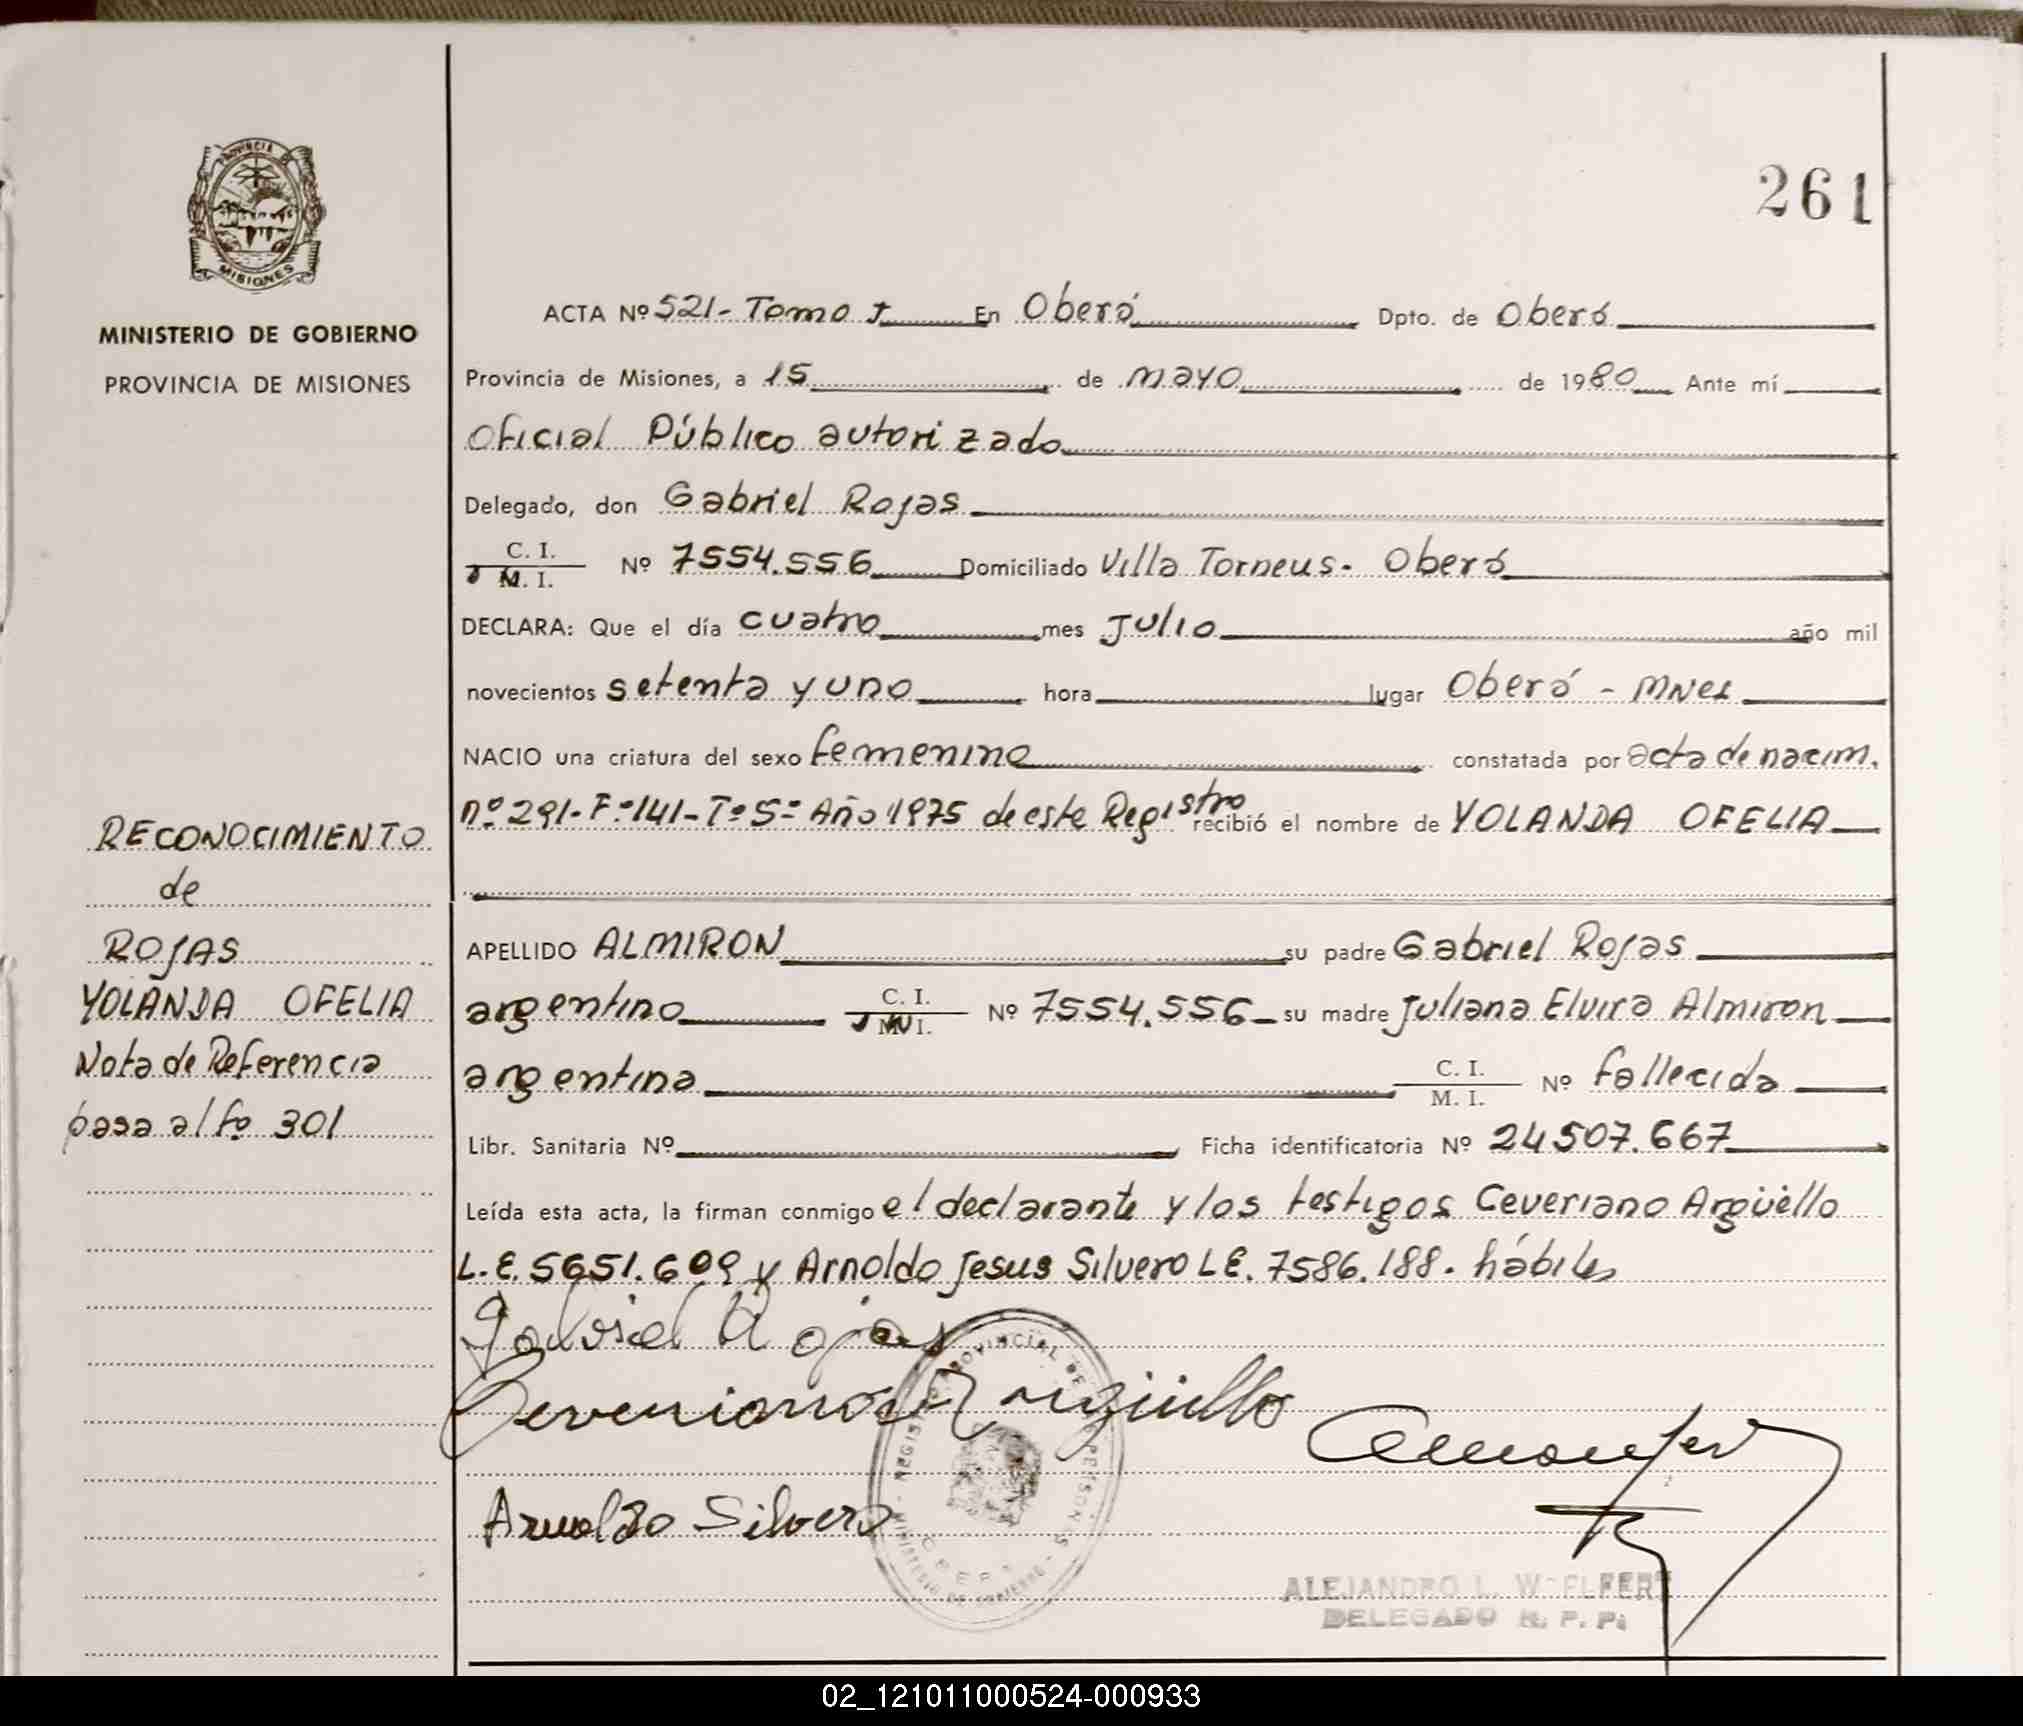 261
PROVINCIA DE
MISIONES
MINISTERIO DE GOBIERNO
PROVINCIA DE MISIONES
RECONOCIMIENTO
de
ROJAS
YOLANDA OFELIA
Nota de Referencia
pasa al fº 301
ACTA Nº 521- Tomo I En Oberá Dpto. de Oberá
Provincia de Misiones, a 15 de mayo de 1980 Ante mí
Oficial Público autorizado
Delegado, don Gabriel Rojas
C. I.
M. I. Nº 7554.556 Domiciliado Villa Torneus- Oberá
DECLARA: Que el día cuatro mes Julio año mil
novecientos setenta y uno hora lugar Oberá - Mnes
NACIO una criatura del sexo femenino constatada por acta de nacim.
nº 291- Fº 141- Tº 5º Año 1975 de este Registro recibió el nombre de YOLANDA OFELIA
APELLIDO ALMIRON su padre Gabriel Rojas
argentino C. I. M. I. Nº 7554.556 su madre Juliana Elvira Almiron
argentina C. I. M. I. Nº fallecida
Libr. Sanitaria Nº Ficha identificatoria Nº 24507.667
Leída esta acta, la firman conmigo el declarante y los testigos Ceveriano Argüello
L.E. 5651.609 y Arnoldo Jesus Silvero L E. 7586.188. hábiles
Gabriel Rojas
Ceveriano Argüello
Arnoldo Silvero
REGISTRO PROVINCIAL DE LAS PERSONAS
MINISTERIO DE GOBIERNO
OBERA
ALEJANDRO L.
DELEGADO R. P. P.
02_121011000524-000933